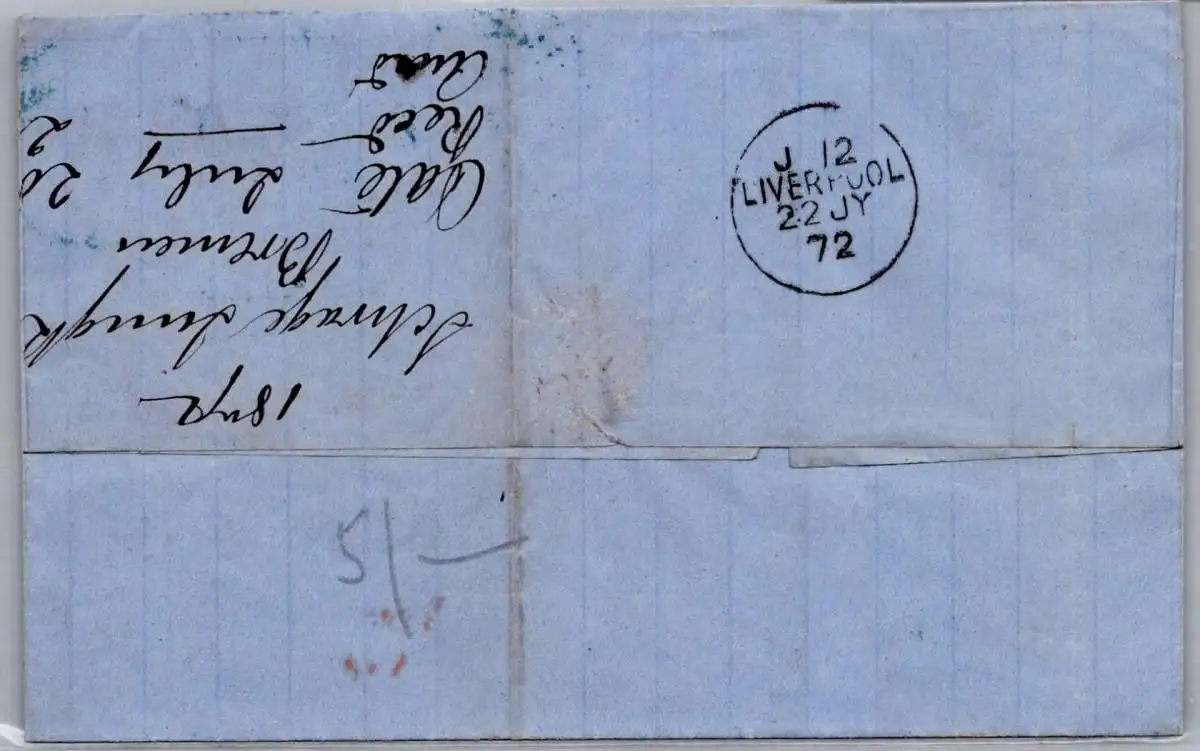 1872
Schrage Jungk
Bremen
Date July 20
Recd 2
Ansd
J 12
LIVERPOOL
22 JY
72
5/-